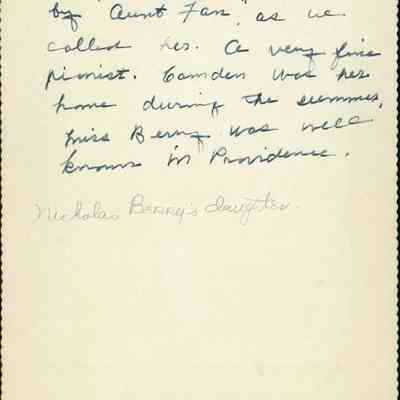 by "Aunt Fan", as we
called her. A very fine
pianist. Camden was her
home during the summer,
Miss Berry was well
known in Providence.
Nicholas Berry's daughter.